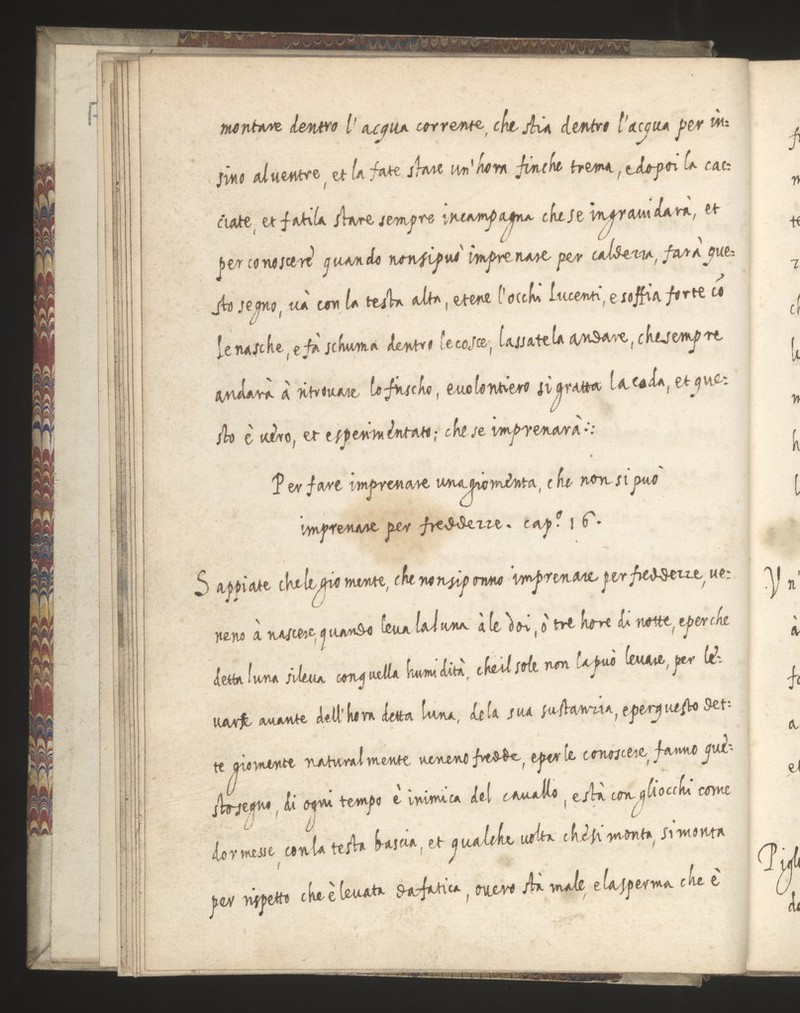 montare dentro l'acqua corrente, che stia dentro l'acqua per in=
sino al uentre, et la fate stare un'hora finche trema, e dopoi la cac=
ciate, et fatila stare sempre in campagna che se ingrauidarà, et
per conoscere quando non si può imprenare per caldezza, farà que=
sto segno, uà con la testa alta, e tene l'occhi lucenti, e soffia forte cõ
le nasche, e fà schuma dentro le cosce, lassatela andare, che sempre
andarà à ritrouare lo fruscho, e uolontiero si gratta la coda, et que=
sto è uéro, et esperimentato; che se imprenarà.:
Per fare imprenare una giomenta, che non si può
imprenare per freddezze. cap.º 16.
Sappiate che le giomente, che non si ponno imprenare per freddezze, ue=
neno à nascere, quando leua la luna à le doi, ò tre hore di notte, e perche
detta luna si leua con quella humidità, che il sole non la può leuare, per le=
uarse auante dell'hora detta luna, de la sua sustanzia, e per questo det=
te giomente naturalmente ueneno fredde, e per le conoscere, fanno que=
sto segno, di ogni tempo è inimica del cauallo, e stà con gli occhi come
dormesse, con la testa bascia, et qualche uolta che si monta, si monta
per rispetto che è leuata da fatica, ouero stà male, e la sperma che è
n'
à
a
Pigl